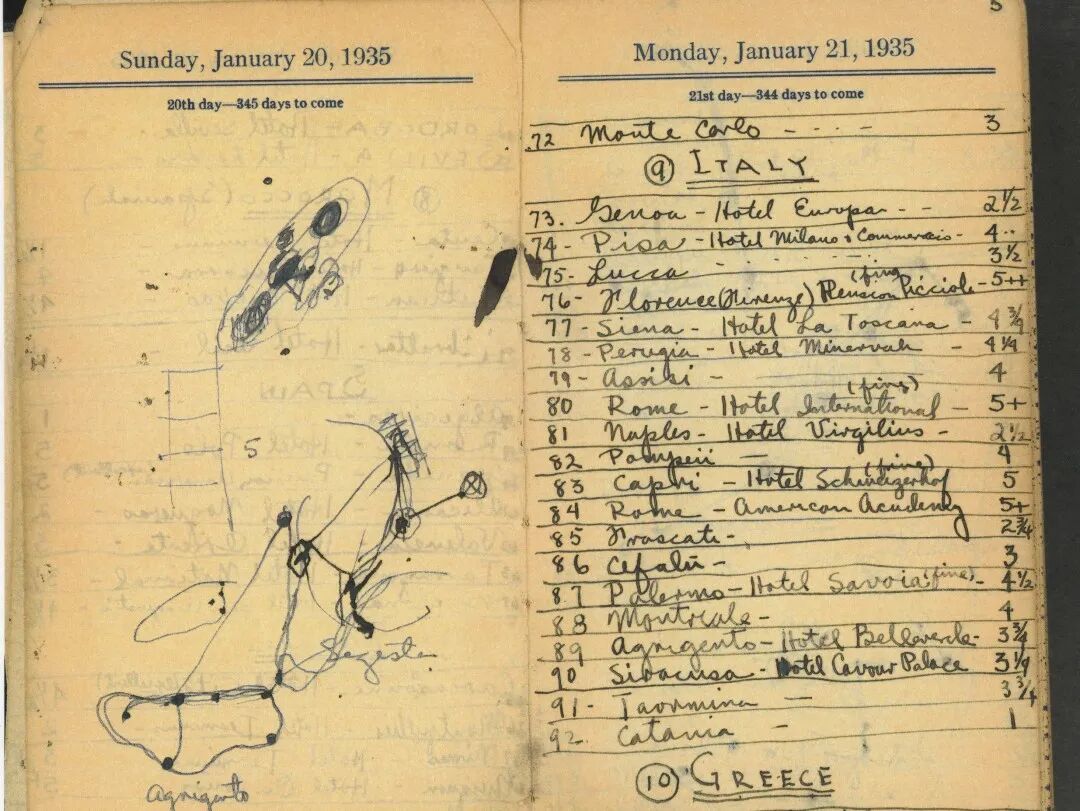 Sunday, January 20, 1935
20th day—345 days to come
5
Segesta
Agrigento
5
Monday, January 21, 1935
21st day—344 days to come
72 Monte Carlo - - - - 3
⑨ ITALY
73. Genoa - Hotel Europa - - 2½
74 - Pisa - Hotel Milano & Commercio - 4
75 - Lucca 3½
76 - Florence (Firenze) Pension Picciola - 5++
(fine)
77 - Siena - Hotel La Toscana - 4¾
78 - Perugia - Hotel Minerva 4¼
79 - Assisi - 4
80 Rome - Hotel International - 5+
(fine)
81 Naples - Hotel Virgilius - 2½
82 Pompeii - 4
83 Capri - Hotel Schweizerhof 5
(fine)
84 Rome - American Academy 5+
85 Frascati - 2¾
86 Cefalù - 3
87 Palermo - Hotel Savoia (fine) - 4½
88 Montreale - 4
89 Agrigento - Hotel - 3¾
90 Siracusa - Hotel Cavour Palace 3¼
91 - Taormina - 3¾
92 Catania - 1
⑩ GREECE